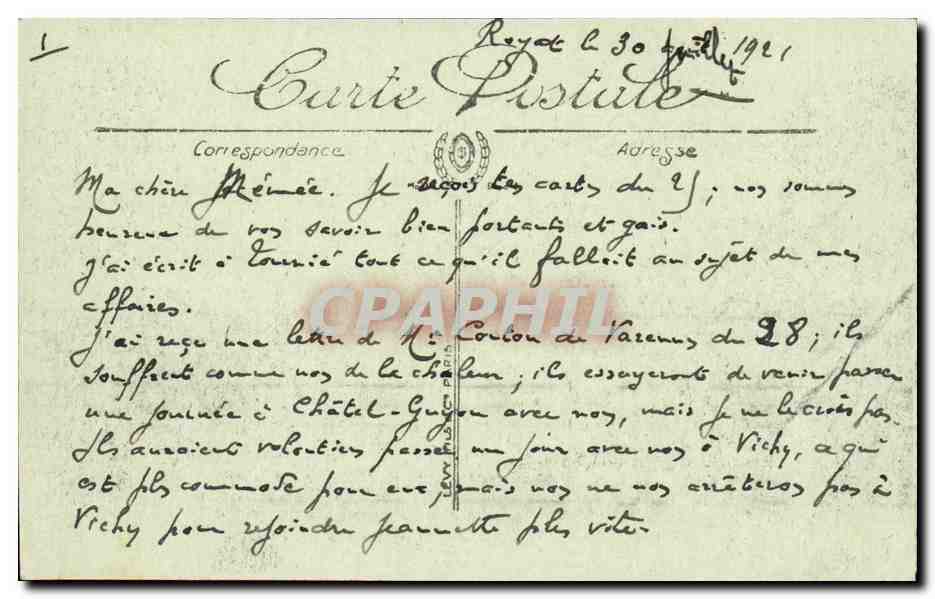 1
Royat le 30 juillet 1921
Carte Postale
Correspondance
Adresse
Ma chère Mémée. Je reçois tes cartes du 25 ; nos sommes
heureux de vos savoir bien portants et gais.
J'ai écrit à Tournié tout ce qu'il fallait au sujet de mes
affaires.
CPAPHIL
J'ai reçu une lettre de Mr Couton de Varennes du 28 ; ils
souffrent comme nos de la chaleur ; ils essayeront de venir passer
une journée à Châtel-Guyon avec nos, mais je ne le crois pas.
Ils auraient volontiers passé un jour avec nos à Vichy, ce qui
est pls commode pour eux, mais nos ne nos arrêterons pas à
Vichy pour rejoindre Jeannette pls vite.
LEVY FILS & Cie PARIS